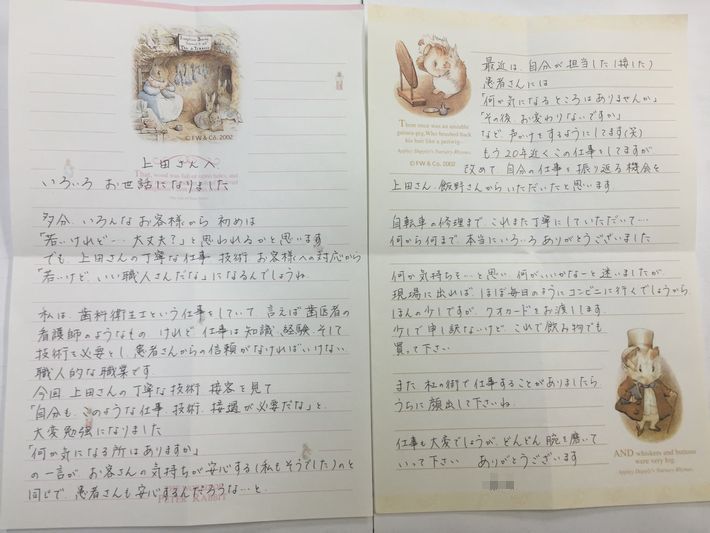 上田さんへ
いろいろお世話になりました
多分、いろんなお客様から初めは
「若いけれど…大丈夫?」と思われるかと思います
でも上田さんの丁寧な仕事 技術 お客様への対応から
「若いけど、いい職人さんだな」になるんでしょうね
私は歯科衛生士という仕事をしていて 言えば歯医者の
看護師のようなもの けれど 仕事は知識 経験 そして
技術を必要とし 患者さんからの信頼がなければいけない
職人的な職業です
今回 上田さんの丁寧な技術 接客を見て
「自分も このような仕事 技術 接遇が必要だな」と
大変勉強になりました
「何か気になる所はありますか」
の一言が お客さんの気持ちが安心する(私もそうでした)のと
同じで 患者さんも安心するんだろうな…と
最近は 自分が担当した(接した)
患者さんには
「何か気になるところはありませんか」
「その後 お変わりないですか」
など 声かけをするようにしてます(笑)
もう20年近くこの仕事をしてますが
改めて 自分の仕事を振り返る機会を
上田さん 飯野さんからいただいたと思います
自転車の修理まで これまた丁寧にしていただいて…
何から何まで 本当にいろいろありがとうございました
何か気持ちを…と思い 何がいいかな と迷いましたが
現場に出れば ほぼ毎日のようにコンビニに行くでしょうから
ほんの少しですが クオカードをお渡しします
少しで申し訳ないけど これで飲み物でも
買って下さい
また 私の街で仕事することがありましたら
うちに顔出して下さいね
仕事も大変でしょうが どんどん腕を磨いて
いって下さい ありがとうございます
©F.W.& Co. 2002
©F.W.& Co. 2002
AND whiskers and buttons
were very big